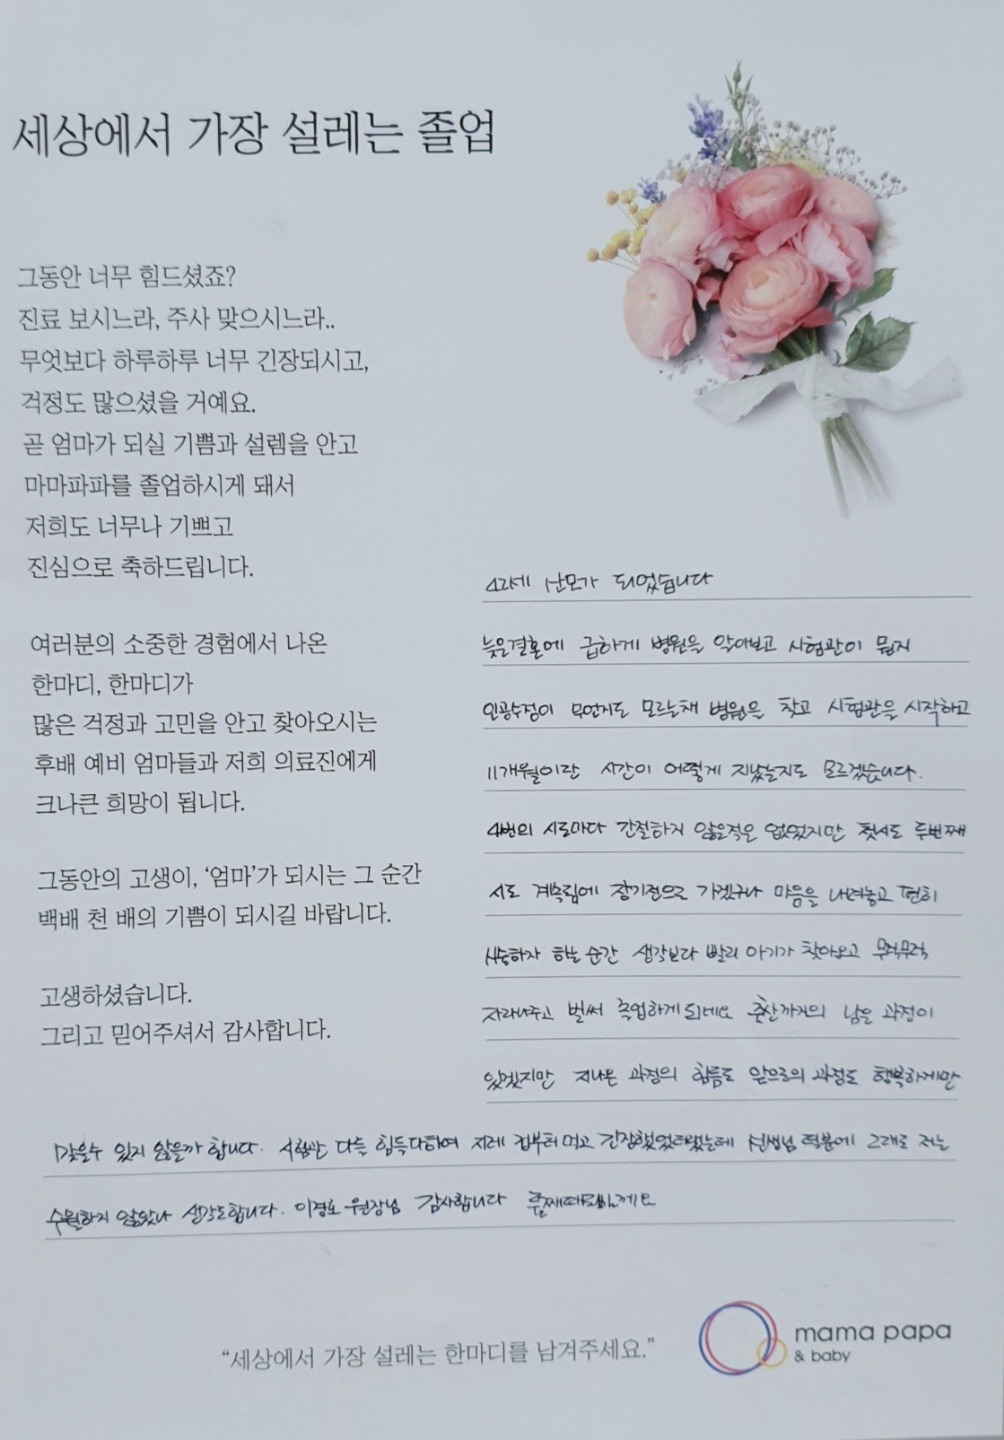 세상에서 가장 설레는 졸업
그동안 너무 힘드셨죠?
진료 보시느라, 주사 맞으시느라..
무엇보다 하루하루 너무 긴장되시고,
걱정도 많으셨을 거예요.
곧 엄마가 되실 기쁨과 설렘을 안고
마마파파를 졸업하시게 돼서
저희도 너무나 기쁘고
진심으로 축하드립니다.
여러분의 소중한 경험에서 나온
한마디, 한마디가
많은 걱정과 고민을 안고 찾아오시는
후배 예비 엄마들과 저희 의료진에게
크나큰 희망이 됩니다.
그동안의 고생이, '엄마'가 되시는 그 순간
백배 천 배의 기쁨이 되시길 바랍니다.
고생하셨습니다.
그리고 믿어주셔서 감사합니다.
산모가 되었습니다
늦은결혼에 급하게 병원을 알아보고 시험관이 뭔지
인공수정이 무언지도 모르는채 병원을 찾고 시험관을 시작하고
11개월이란 시간이 어떻게 지났는지도 모르겠습니다.
4번의 시도마다 간절하지 않은적은 없었지만 첫시도 두번째
시도 계속됨에 장기전으로 가겠구나 마음을 내려놓고 편히
하자 하는 순간 생각보다 빨리 아기가 찾아오고 무럭무럭
자라나주고 벌써 졸업하게되네요 출산까지의 남은 과정이
있겠지만 지나온 과정의 힘듦도 앞으로의 과정도 행복하게만
맞을수 있지 않을까 합니다. 시험관 다들 힘들다하여 지레 겁부터먹고 긴장했었더랬는데 선생님 덕분에 그래도 저는
수월하지 않았나 생각도합니다. 이경호 원장님 감사합니다 둘째때
"세상에서 가장 설레는 한마디를 남겨주세요."
mama papa
& baby